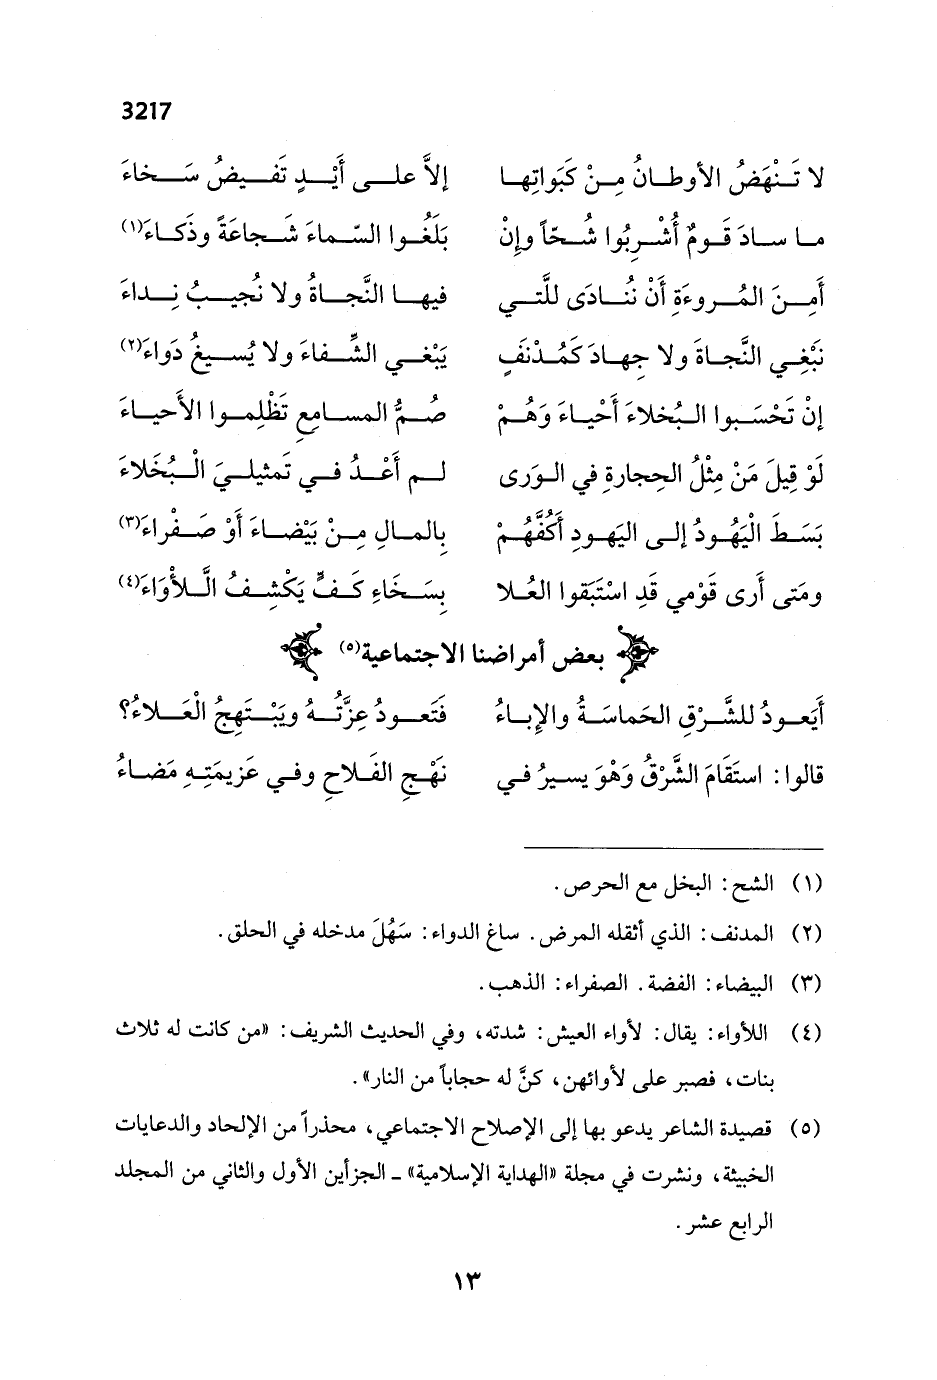 3217
لا تَنْهَضُ الأوطانُ مِنْ كَبَواتِها إلاَّ على أَيْدٍ تَفيضُ سَخاءَ
ما سادَ قَومٌ أُشْرِبُوا شُحّاً وإِنْ بَلَغُوا السّماءَ شَجاعَةً وذَكاءَ(١)
أَمِنَ المُروءَةِ أَنْ نُنادَى للَّتي فيها النَّجاةُ ولا نُجيبُ نِداءَ
نَبْغِي النَّجاةَ ولا جِهادَ كَمُدْنَفٍ يَبْغي الشِّفاءَ ولا يُسيغُ دَواءَ(٢)
إنْ تَحْسَبوا البُخلاءَ أَحْياءَ وَهُمْ صُمُّ المسامِعِ تَظْلِموا الأَحياءَ
لَوْ قِيلَ مَنْ مِثْلُ الحِجارةِ في الوَرى لم أَعْدُ في تَمثيليَ الْبُخَلاءَ
بَسَطَ الْيَهُودُ إلى اليَهودِ أَكُفَّهُمْ بِالمالِ مِنْ بَيْضاءَ أَوْ صَفْراءَ(٣)
ومَتى أَرى قَوْمي قَدِ اسْتَبَقوا العُلا بِسَخَاءِ كَفٍّ يَكْشِفُ الَّلأْوَاءَ(٤)
بعض أمراضنا الاجتماعية(٥)
أَيَعودُ للشَّرْقِ الحَماسَةُ والإِباءُ فَتَعودُ عِزَّتُهُ ويَبْتَهِجُ الْعَلاءُ؟
قالوا: استَقَامَ الشَّرْقُ وَهْوَ يسيرُ في نَهْجِ الفَلاحِ وفي عَزيمَتِهِ مَضاءُ
(١) الشح: البخل مع الحرص.
(٢) المدنف: الذي أثقله المرض. ساغ الدواء: سَهُلَ مدخله في الحلق.
(٣) البيضاء: الفضة. الصفراء: الذهب.
(٤) اللأواء: يقال: لأواء العيش: شدته، وفي الحديث الشريف: «من كانت له ثلاث
بنات، فصبر على لأوائهن، كنَّ له حجاباً من النار».
(٥) قصيدة الشاعر يدعو بها إلى الإصلاح الاجتماعي، محذراً من الإلحاد والدعايات
الخبيثة، ونشرت في مجلة «الهداية الإسلامية» ـ الجزأين الأول والثاني من المجلد
الرابع عشر.
١٣